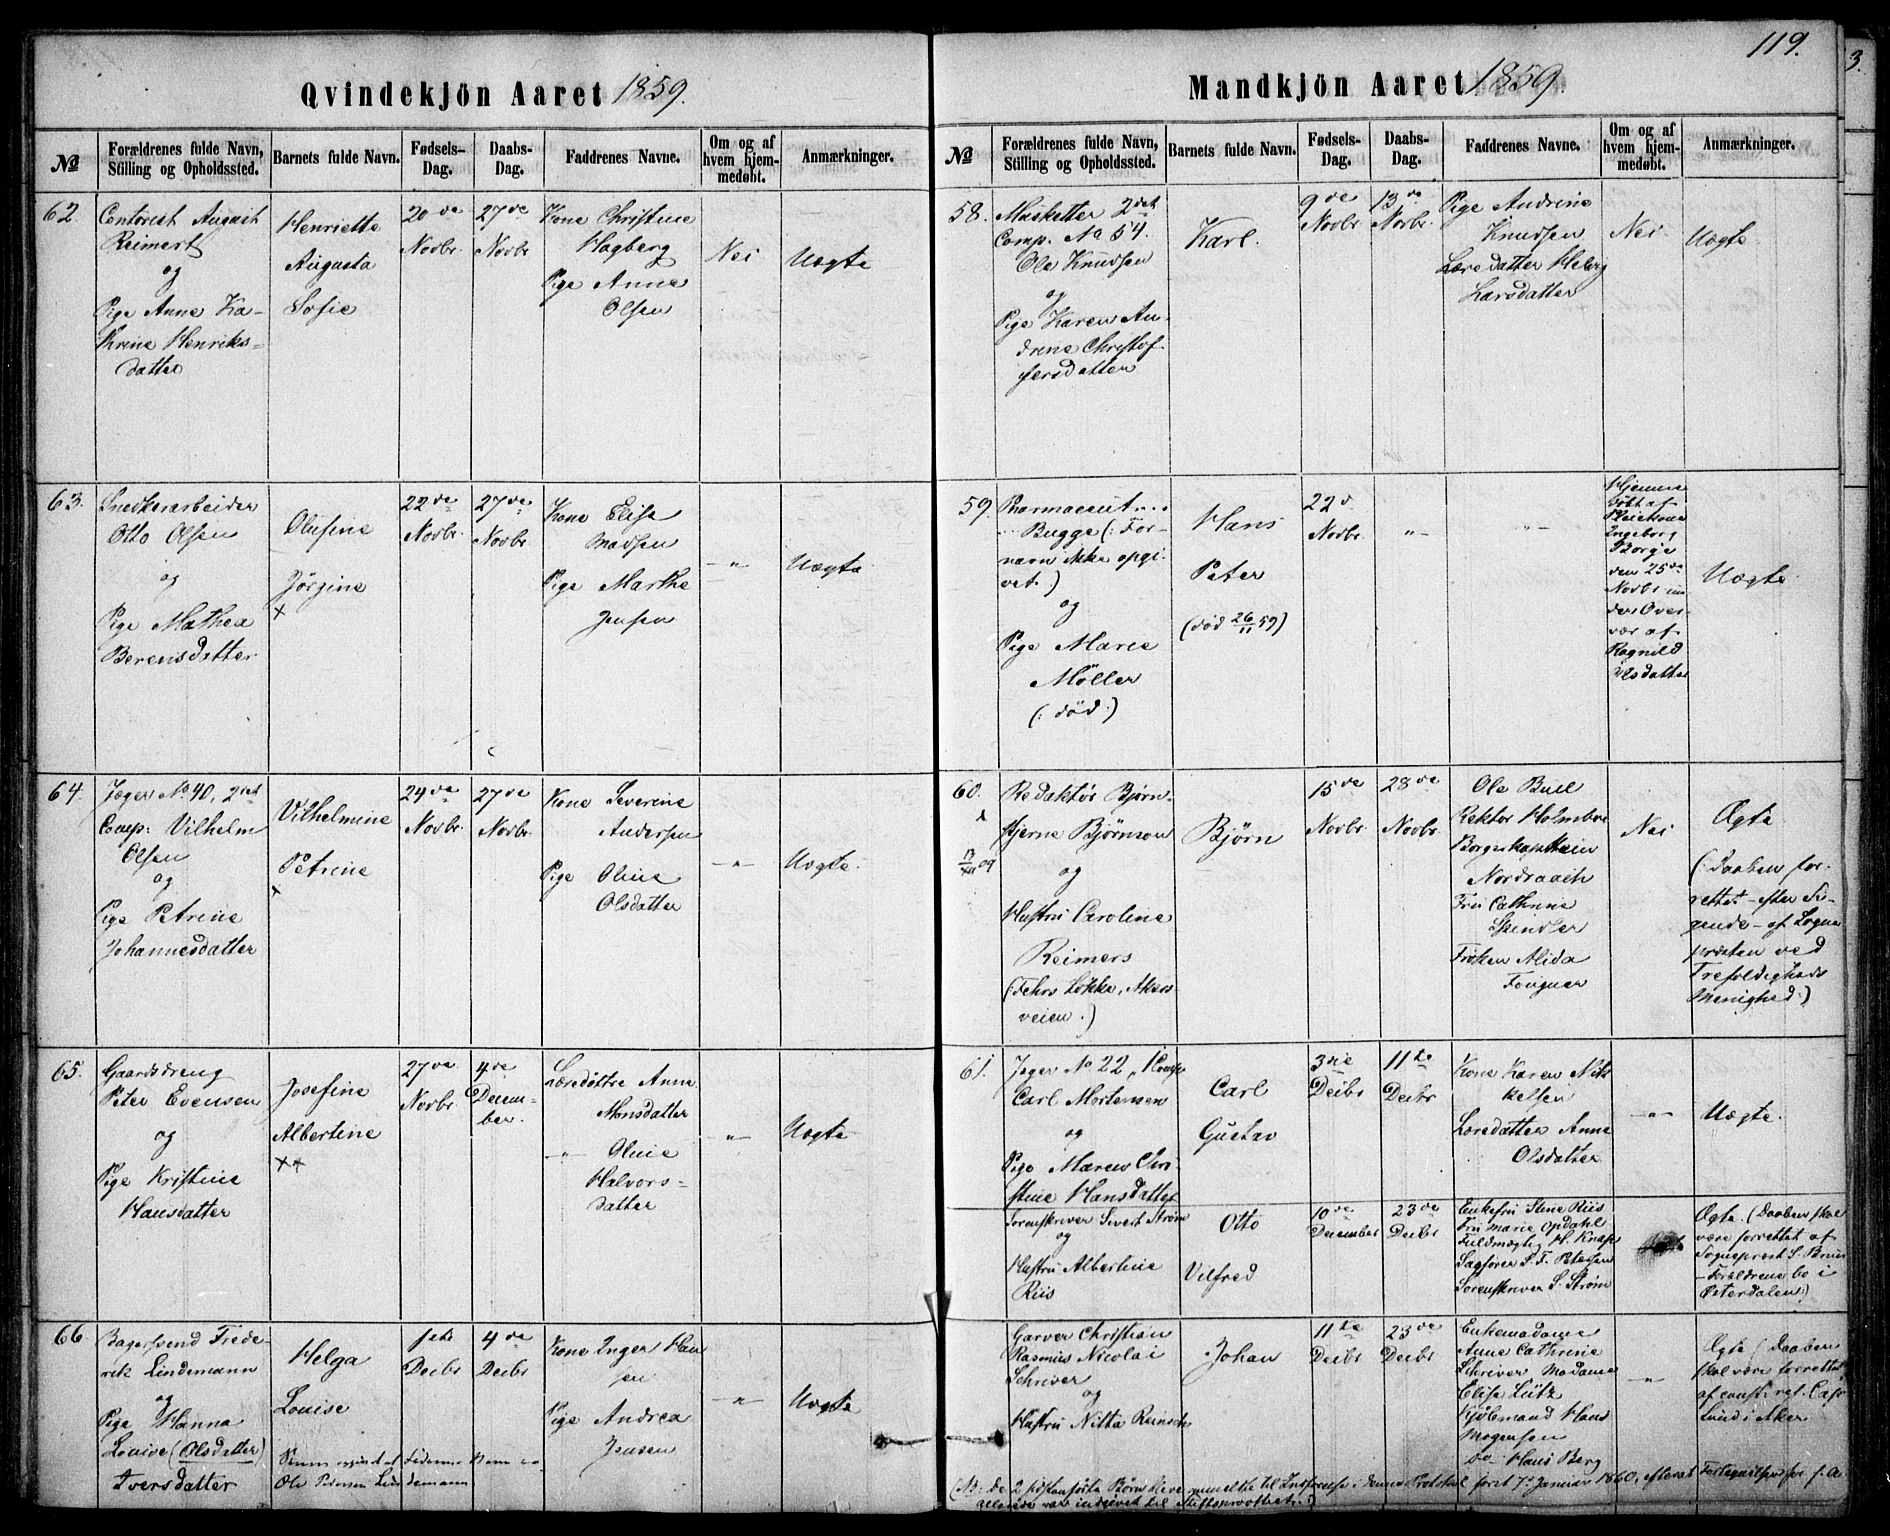 119.
3.
Qvindekjön Aaret 1859.
№
Forældrenes fulde Navn,
Stilling og Opholdssted.
Barnets fulde Navn.
Fødsels-
Dag.
Daabs-
Dag.
Faddrenes Navne.
Om og af
hvem hjem-
medøbt.
Anmærkninger.
62.
Contorist August
Reimert
og
Pige Anne Ka-
thrine Henriks-
datter
Henriette
Augusta
Sofie
20de
Novbr.
27de
Novbr
Kone Christine
Hagberg
Pige Anne
Olsen
Nei
Uægte
63.
Snedkerarbeider
Otto Olsen
og
Pige Mathea
Berensdatter
Olufine
Jørgine
×
22de
Novbr.
27de
Novbr.
Kone Elise
Madsen
Pige Marthe
Jensen
—"—
Uægte
64.
Jæger No 40, 2det
Comp: Vilhelm
Olsen
og
Pige Petrine
Johannesdatter
Vilhelmine
Petrine
×
24de
Novbr.
27de
Novbr.
Kone Severine
Andersen
Pige Oline
Olsdatter
—"—
Uægte
65.
Gaardsdreng
Peter Evensen
og
Pige Kristine
Hansdatter
Josefine
Albertine
××
27de
Novbr.
4de
Decem-
ber.
Læredøttre Anne
Monsdatter
—"— Oline
Halvors-
datter
"
Uægte
66
Bagersvend Frede-
rik Lindemann
og
Pige Hanna
Louise (Olsdatter)
Iversdatter
Helga
Louise
Ole Pedersen Lindemann
1ste
Decbr
4de
Decbr
Kone Inger Han
sen
Pige Andrea
Jensen
—"—
Uægte
Mandkjön Aaret 1859.
№
Forældrenes fulde Navn,
Stilling og Opholdssted.
Barnets fulde Navn.
Fødsels-
Dag.
Daabs-
Dag.
Faddrenes Navne.
Om og af
hvem hjem-
medøbt.
Anmærkninger.
58.
Musketter 2det
Comp. No 54.
Ole Knudsen
og
Pige Karen An-
drene Christof-
fersdatter
Karl.
9de
Novbr.
13de
Novbr.
Pige Andrine
Knudsen
Læredatter Heleg
Larsdatter
Nei
Uægte
59.
Parmaceut
Bugge (: For-
navn ikke opgi-
vet.)
og
Pige Marie
Møller
(: død.)
Hans
Peter
(død 26/11 59)
22d
Novbr.
—"—
—"—
Hjemme
døbt af
Pleiekone
Ingeborg
Borge
den 25de
Novbr un
der Over-
vær af
Ragnild
Olsdatter
Uægte
60.
13/XII 09
Redaktør Bjørn-
stjerne Bjørnson
og
Hustru Caroline
Reimers
(:Fehrs Løkke, Akers-
veien.)
Bjørn
15de
Novbr.
28de
Novbr.
Ole Bull
Rektor Holmboe
Borgerkaptein
Nordraach
Fru Cathrine
Spindler
Frøken Alida
Fougner
Nei
Ægte
(:Daaben for-
rettet – efter Si-
gende – af Sogne
præsten ved
Trefoldigheds
Menighed.)
61.
Jæger No 22, Komp
Carl Mortensen
og
Pige Maren Chri-
stine Hansdatter
Carl
Gustav
3die
Decbr
11te
Decbr
Kone Karen Mik
kelsen
Læredatter Anne
Olsdatter
—"—
Uægte.
Sorenskriver Sivert Strøm
og
Hustru Albertine
Riis
Otto
Vilfred
10de
December
23de
Decbr
Enkefru Stene Riis
Fru Marie Opdahl
Fuldmægtig H. Knaps
Sagfører S. F. Petersen
Sorenskriver S. Strøm
Ægte. (Daaben skal
være forrettet af
Sogneprest S. Bruun
– Forældrene bo i
Østerdalen.)
Garver Christian
Rasmus Nicolai
Schriver
og
Hustru Nitta Reinsch
Johan
11te
Decbr
23de
Decbr
Enkemadame
Anne Cathrine
Schriver Madame
Elise Lütz
Kjøbmand Hans
Mogensen
do Hans Berg
"
Ægte (Daaben
skal være forrettet
af const. res. Cap.
Lund i Aker
(NB: de 2 sidstanførte Børn bleve anmeldte til Indførelse i denne Protokol først 7de Januar 1860, efterat Fortegnelsen for f. A
allerede var indgivet til Stiftsprovsten.)